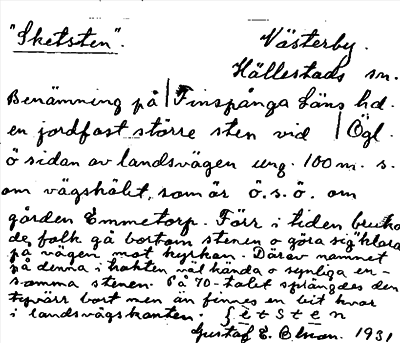 "Sketsten".
Västerby.
Hällestads sn.
Benämning på Finspånga Läns hd.
en jordfast större sten vid Ögl.
ö sidan av landsvägen ung. 100 m. s.
om vägskälet, som är ö.s.ö. om
gården Emmetorp. Förr i tiden bruka
de folk gå bortom stenen o göra sig klara
på vägen mot kyrkan. Därav namnet
på denna i trakten väl kända o synliga en-
samma stenen. På 70-talet sprängdes den
tyvärr bort men än finnes en bit kvar
i landsvägskanten.
Gustaf E. Olsson. 1931